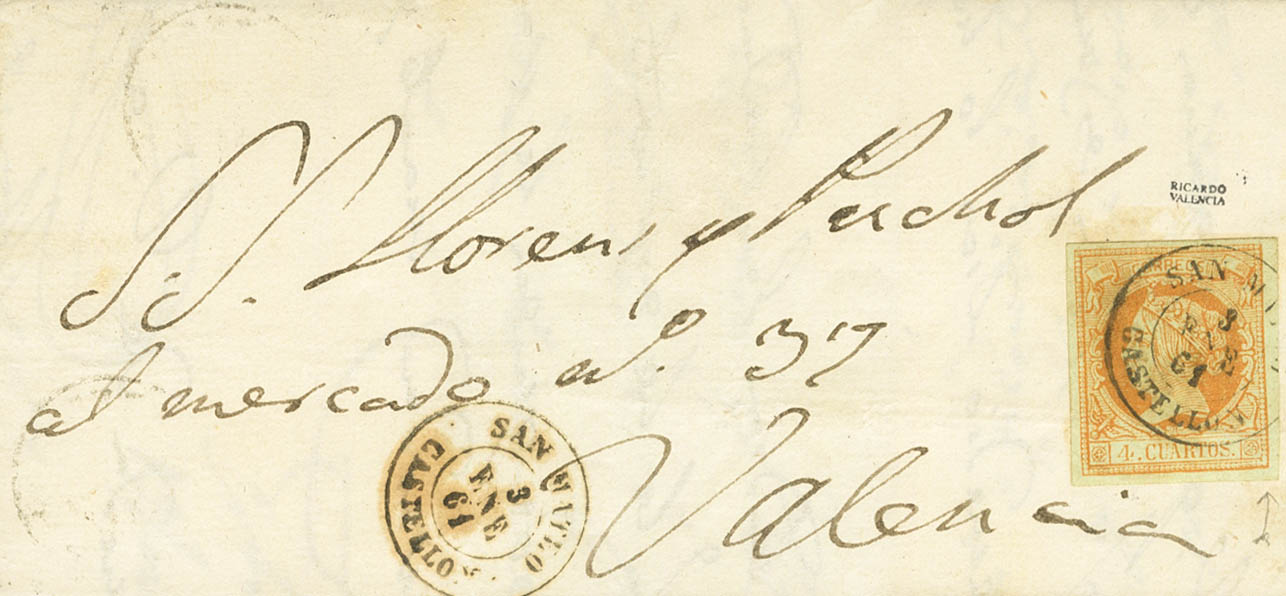 S.S. Llorens y Puchol
al mercado nº. 37
Valencia
RICARDO
VALENCIA
CORREOS
4. CUARTOS.
SAN M
3
ENE
61
CASTELLON
SAN MATEO
3
ENE
61
CASTELLO